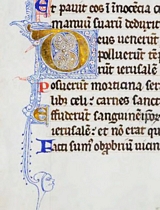 Et pavit eos in inocētia c
manuū suarū deduxit
Deus venerūt
polluerūt tē
rūt ierusalē
Posuerūt morticina ser
libi celi: carnes sanct
Effuderūt sanguinē ip
ierusalē: et nō erat qu
Facti sum' obpbriū vicin